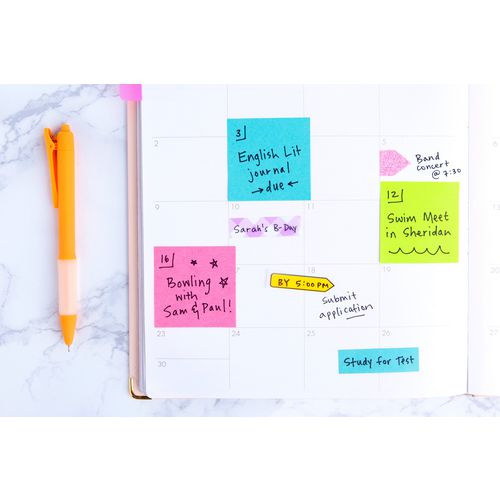 2
3
English Lit
journal
→due←
5
Band
concert
@ 7:30
9
10
Sarah's B-Day
11
12
Swim Meet
in Sheridan
13
16
Bowling
with
Sam & Paul!
17
BY 5:00 PM
18
submit
application
19
20
23
24
25
26
27
Study for Test
30